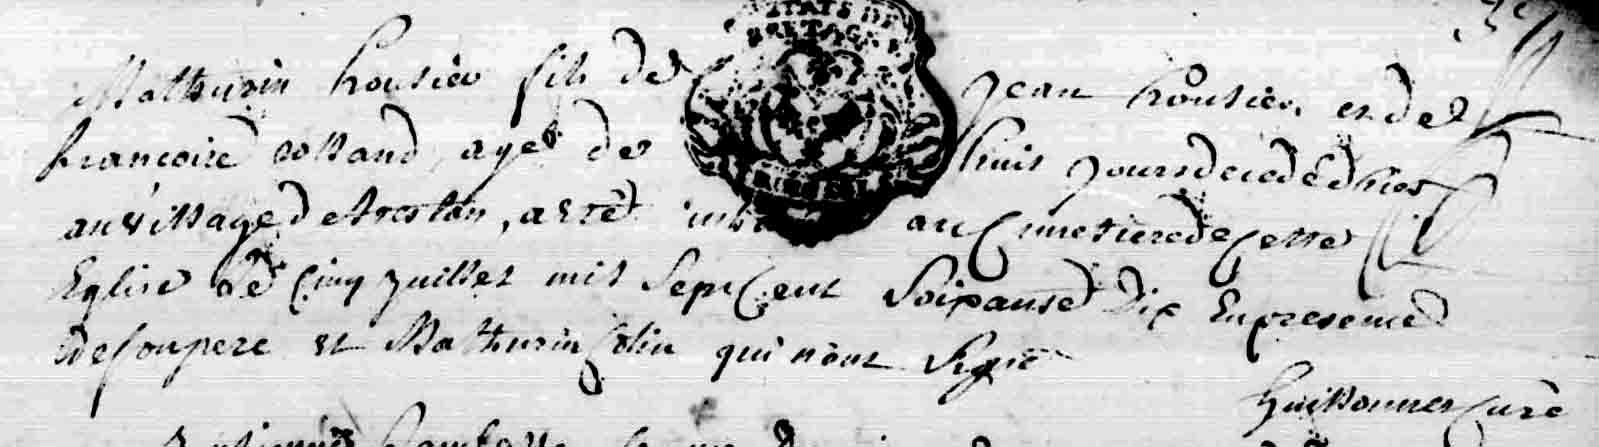 ETATS DE
BRETAGNE
Mathurin housier fils de Jean housier et de
francoise rolland, age de huit jours decedé hier
au village de , a eté inh au Cimetiere de Cette
Eglise le Cinq juillet mil Sept Cent Soixante dix En presence
de Son pere et Mathurin Colin qui n'ont Signé
Guillonnet Curé